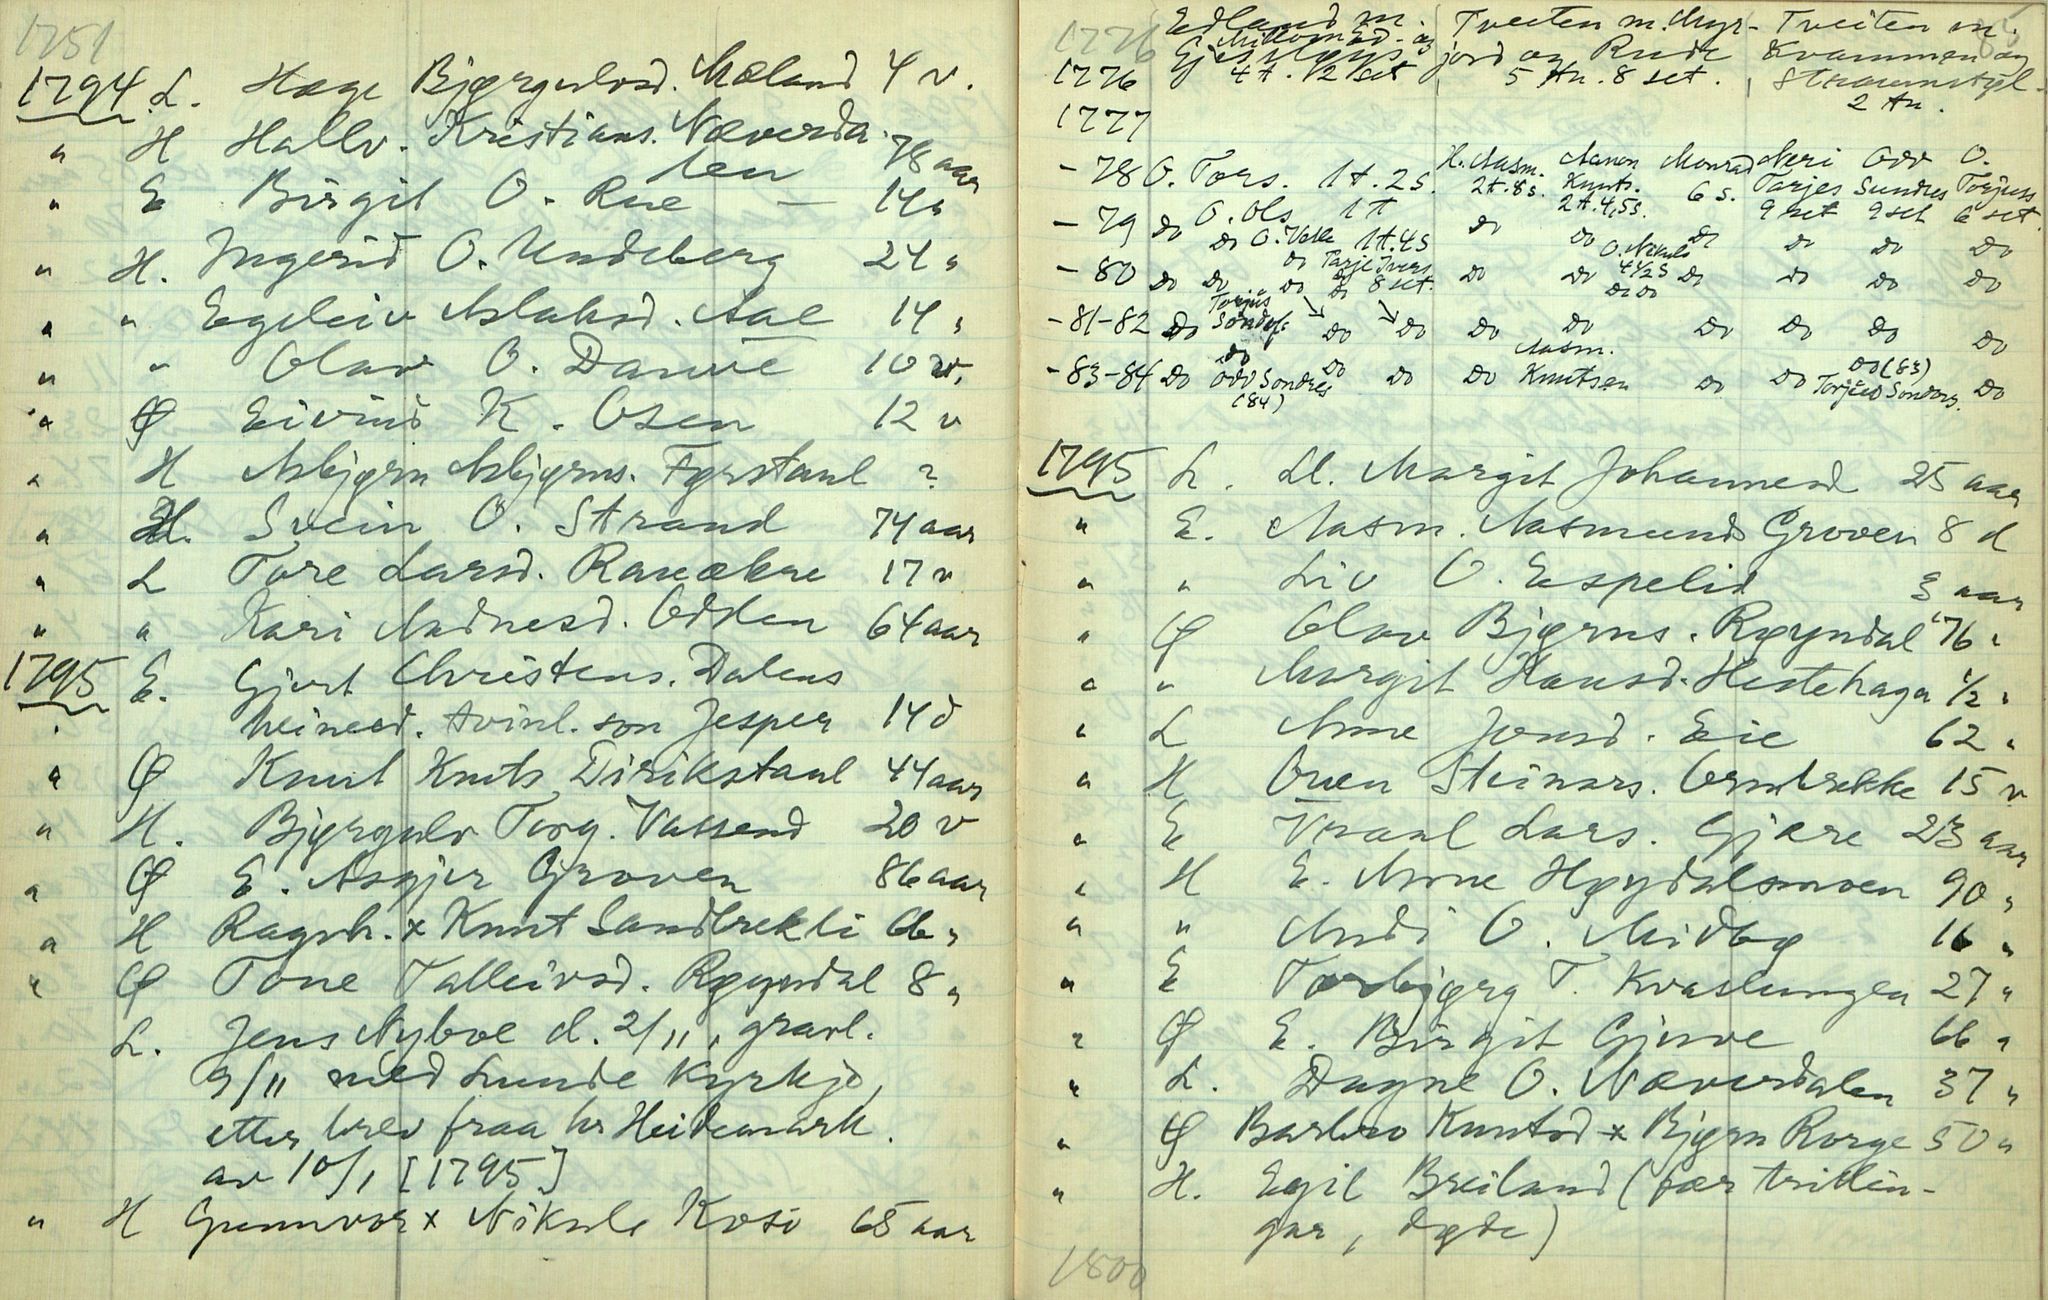 1751
1794 L. Hæge Bjørgulvsd. Mæland 4 v.
" H Hallv. Kristians. Næverda-
len 78 aar
" E Birgit O. Rue — 14 "
" H. Ingerid O. Undeberg 24 "
" " Egeleiv Aslaksd. Aae 14 "
" " Olav O. Dauve 10 v.
" Ø Eivind K. Osen 12 v
" H Asbjørn Asbjørns. Førstaul ?
" H. Svein O. Strand 74 aar
" L Tore Larsd. Raueakre 17 v
" " Kari Andnesd. Odden 64 aar
1795 E. Gjert Christens. Dalens
" tvinl. son Jesper 14 d
" Ø Knut Knuts Dirikstaul 44 aar
" H. Bjørgulv Torg. Vassend 20 v
" Ø E. Asgjer Groven 86 aar
" H Ragnh. x Knut Sandbrekki 66 "
" Ø Tone Talleivsd. Røyndal 8 "
L. Jens Nyboe d. 2/11, gravl.
9/11 med Lunde kyrkje,
etter brev fraa hr Heidemark.
av 10/1 [1795]
" H Gunnvor x Nikuls Kosi 65 aar
1776 Edland m. Tveiten m. Myr- Tveiten m.
Gjestløys jord og Rude Kvammen og
1776 4 t. 1/2 set 5 tn. 8 set. Straumstøl
2 tn.
1777
-78 O. Tors. 1t. 2s. H. Aasm. 2t. 8s. Aanon Knuts. 2t. 4,5s. Monrad 6 s. Neri Tarjes 9 set Odv Sundres 9 set O. Torjuss 6 set
-79 do O. Ols 1t do do do do do do
do O. Valle 1t. 4s O. Nikuls 4 1/2 s
-80 do do do do Tarje Ivers. 8 set. do do do do do do
-81-82 do Torjus Sondr. do do do do do do do do
-83-84 do do do do do Aasm. Knutsen do do do (83) do
Odv Sondres (84) Torjus Sondres.
1795 L. M. Margit Johannesd 25 aar
" E. Aasm. Aasmunds Groven 8 d
" " Liv O. Espelid 3 aar
" Ø Olav Bjørns. Røyndal 76 "
" " Margit Hansd. Hestehaga 1/2 "
" L Anne Jonsd. Eie 62 "
" H Oven Steinars. Ormbrekke 15 v
" E Vraal Lars. Gjære 23 aar
" H E. Anne Høydalsmoen 90 "
" " Andi O. Midbø 16 "
" E Torbjørg T. Kvaslungen 27 "
" Ø E. Birgit Gjuve 66 "
" L. Dagne O. Næverdalen 37 "
" Ø Barbro Knutsd x Bjørn Rorge 50 "
" H. Egil Breiland (fær trillin-
gar, døde)
1800